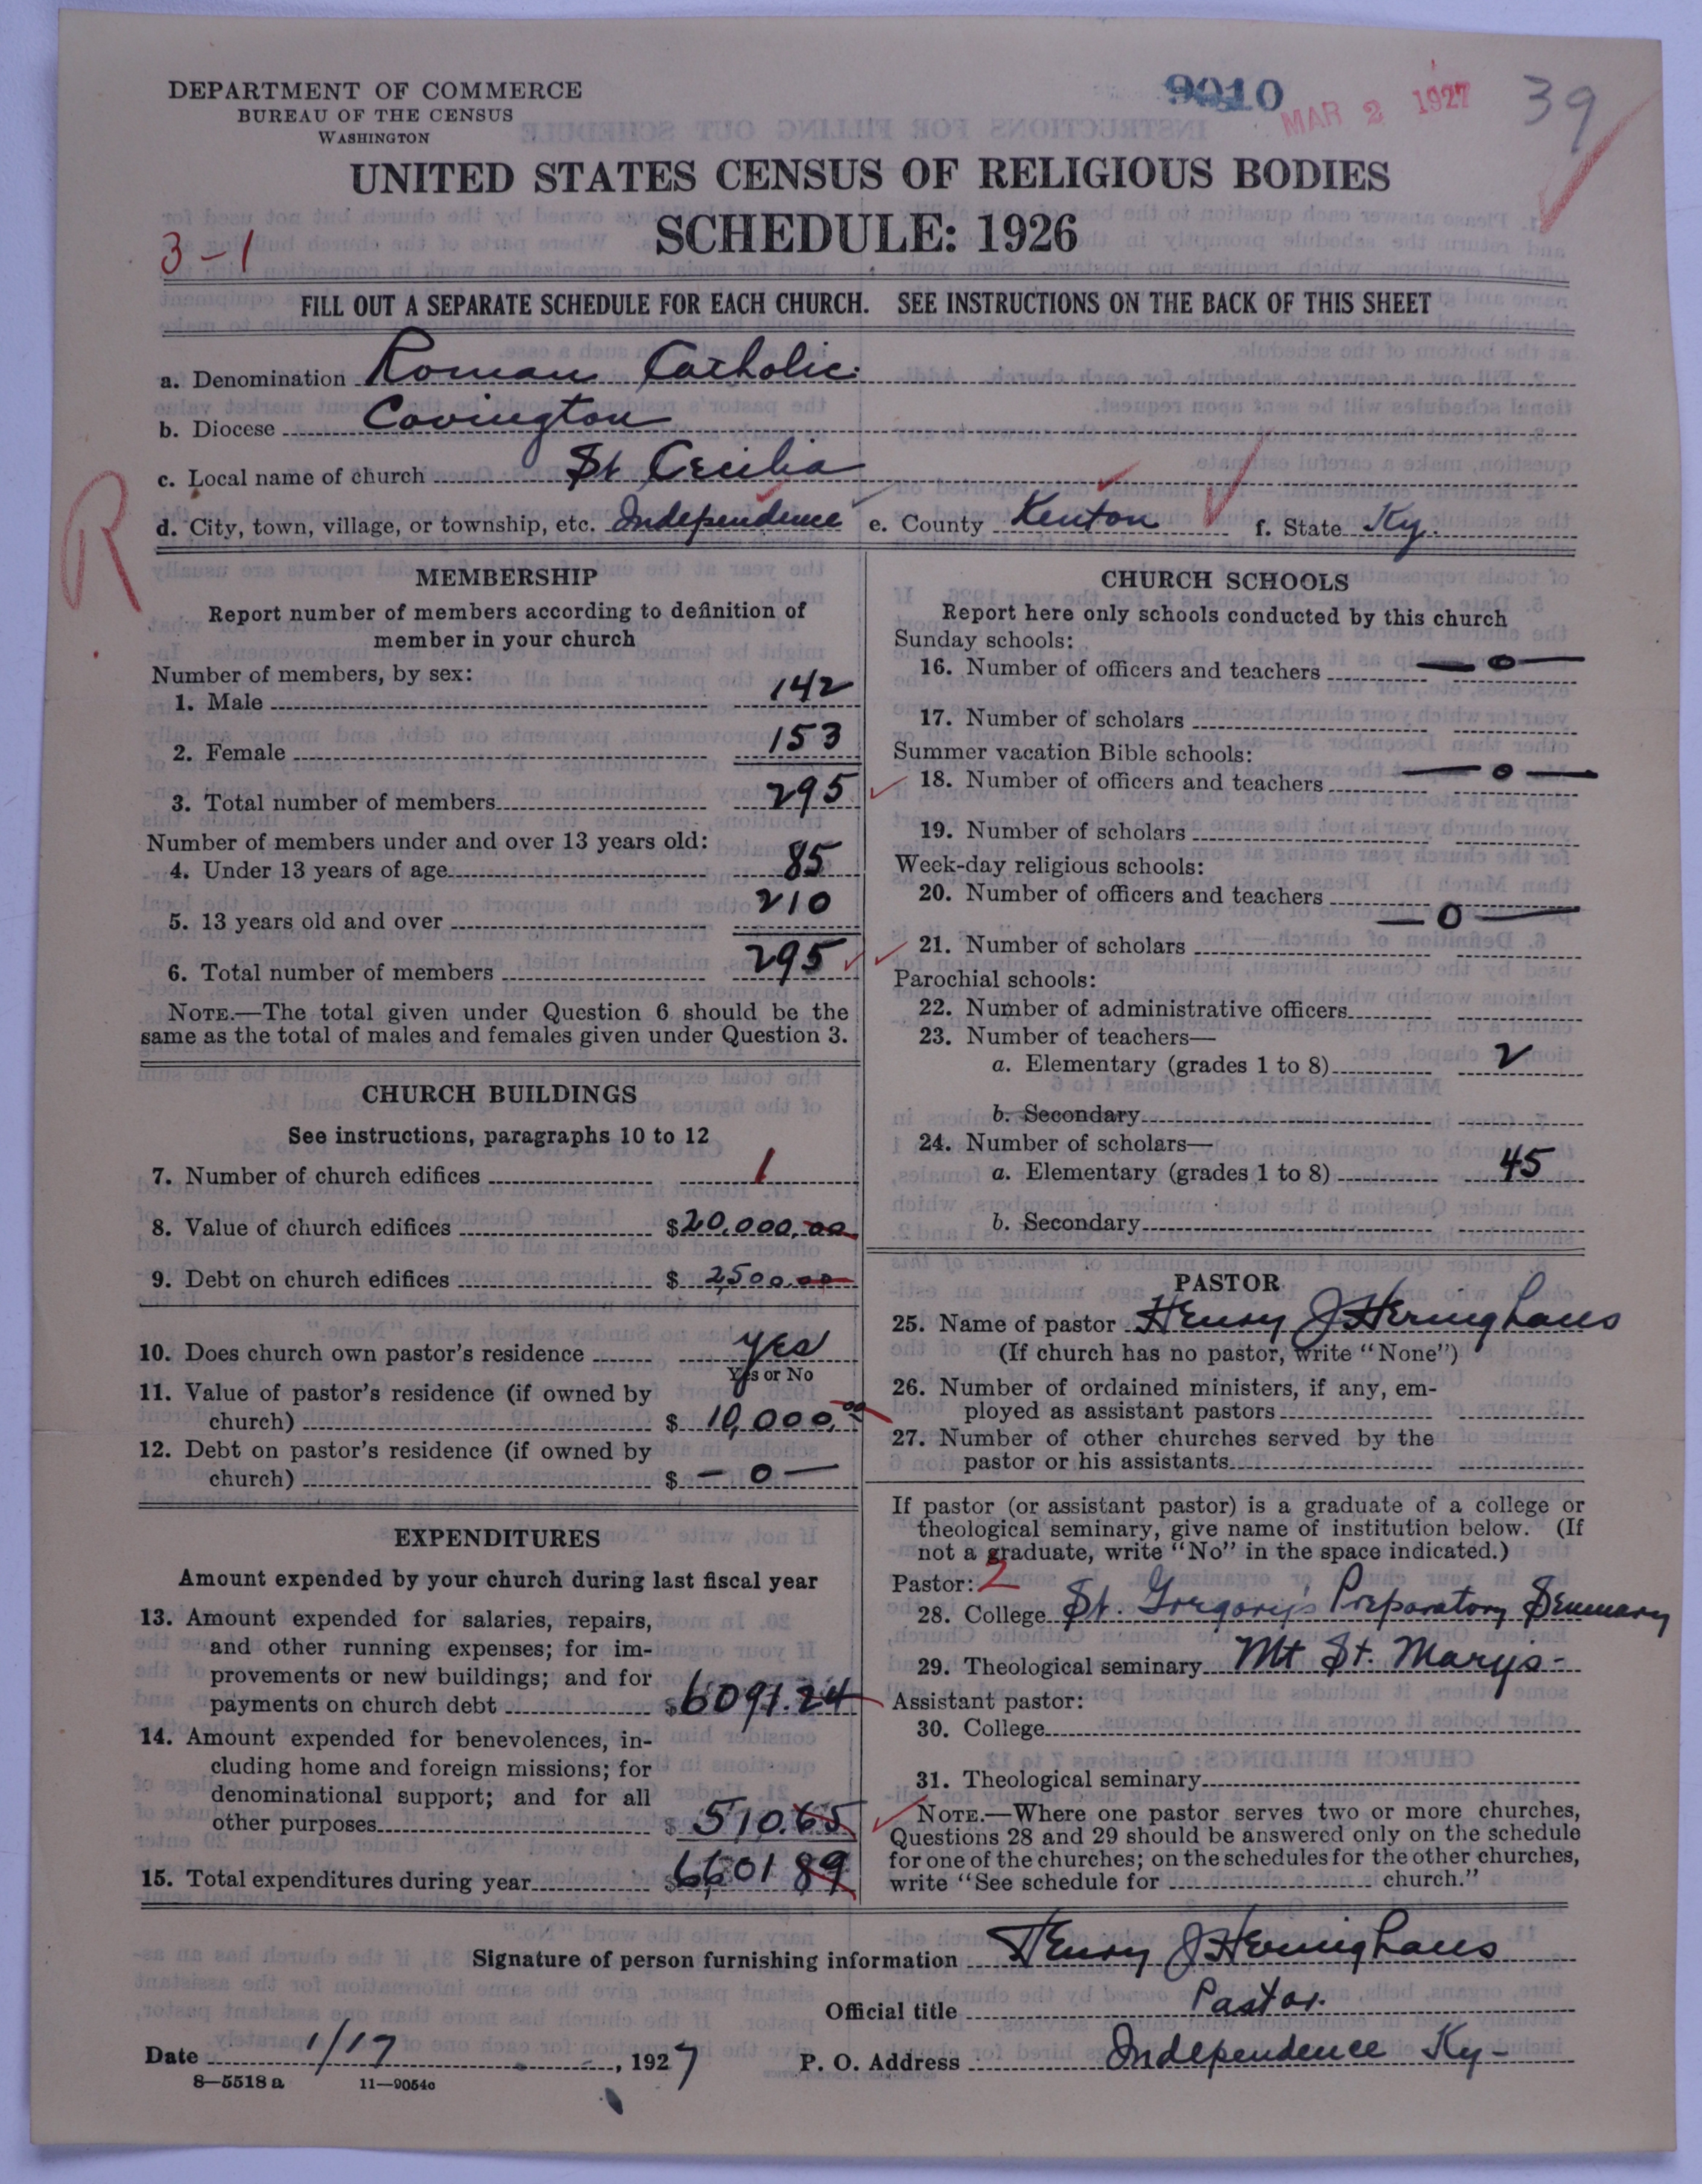 DEPARTMENT OF COMMERCE
BUREAU OF THE CENSUS
WASHINGTON
9010
MAR 2 1927
39
UNITED STATES CENSUS OF RELIGIOUS BODIES
SCHEDULE: 1926
3-1
FILL OUT A SEPARATE SCHEDULE FOR EACH CHURCH. SEE INSTRUCTIONS ON THE BACK OF THIS SHEET
a. Denomination Roman Catholic
b. Diocese Covington
c. Local name of church St Cecilia
d. City, town, village, or township, etc. Independence e. County Kenton f. State Ky.
R
MEMBERSHIP
Report number of members according to definition of
member in your church
Number of members, by sex:
1. Male 142
2. Female 153
3. Total number of members 295
Number of members under and over 13 years old:
4. Under 13 years of age 85
5. 13 years old and over 210
6. Total number of members 295
NOTE.—The total given under Question 6 should be the
same as the total of males and females given under Question 3.
CHURCH BUILDINGS
See instructions, paragraphs 10 to 12
7. Number of church edifices 1
8. Value of church edifices $20,000.00
9. Debt on church edifices $2500.00
10. Does church own pastor's residence yes
Yes or No
11. Value of pastor's residence (if owned by
church) $10,000.00
12. Debt on pastor's residence (if owned by
church) $ — 0 —
EXPENDITURES
Amount expended by your church during last fiscal year
13. Amount expended for salaries, repairs,
and other running expenses; for im-
provements or new buildings; and for
payments on church debt $6091.24
14. Amount expended for benevolences, in-
cluding home and foreign missions; for
denominational support; and for all
other purposes $510.65
15. Total expenditures during year $6601 89
CHURCH SCHOOLS
Report here only schools conducted by this church
Sunday schools:
16. Number of officers and teachers — 0 —
17. Number of scholars
Summer vacation Bible schools:
18. Number of officers and teachers — 0 —
19. Number of scholars
Week-day religious schools:
20. Number of officers and teachers — 0 —
21. Number of scholars
Parochial schools:
22. Number of administrative officers
23. Number of teachers—
a. Elementary (grades 1 to 8) 2
b. Secondary
24. Number of scholars—
a. Elementary (grades 1 to 8) 45
b. Secondary
PASTOR
25. Name of pastor Henry J Heringhaus
(If church has no pastor, write "None")
26. Number of ordained ministers, if any, em-
ployed as assistant pastors
27. Number of other churches served by the
pastor or his assistants
If pastor (or assistant pastor) is a graduate of a college or
theological seminary, give name of institution below. (If
not a graduate, write "No" in the space indicated.)
Pastor: 2
28. College St. Gregory's Preparatory Seminary
29. Theological seminary Mt St. Mary's-
Assistant pastor:
30. College
31. Theological seminary
NOTE.—Where one pastor serves two or more churches,
Questions 28 and 29 should be answered only on the schedule
for one of the churches; on the schedules for the other churches,
write "See schedule for church."
Signature of person furnishing information Henry J Heringhaus
Official title Pastor.
Date 1/17, 1927 P. O. Address Independence Ky-
8—5518 a 11—9054c